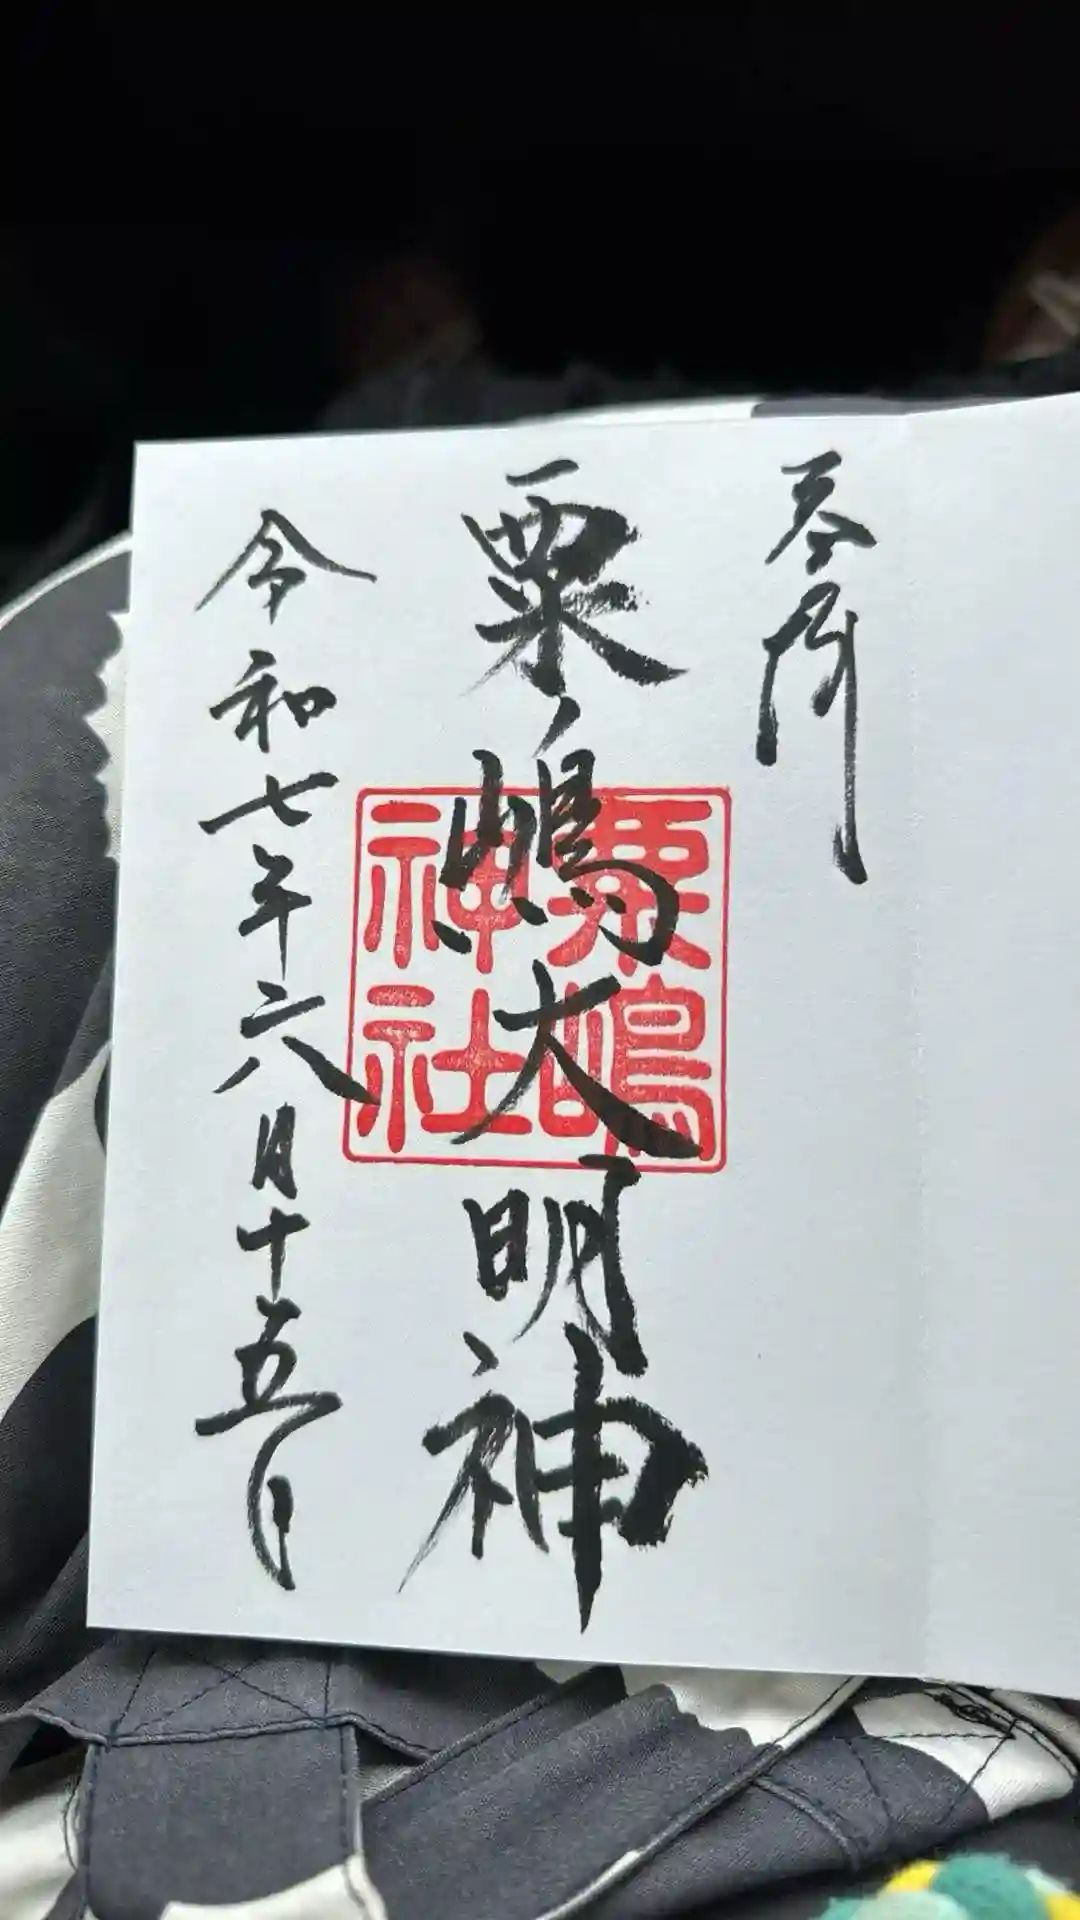 奉拝
粟嶋大明神
粟嶋
神社
令和七年六月十五日